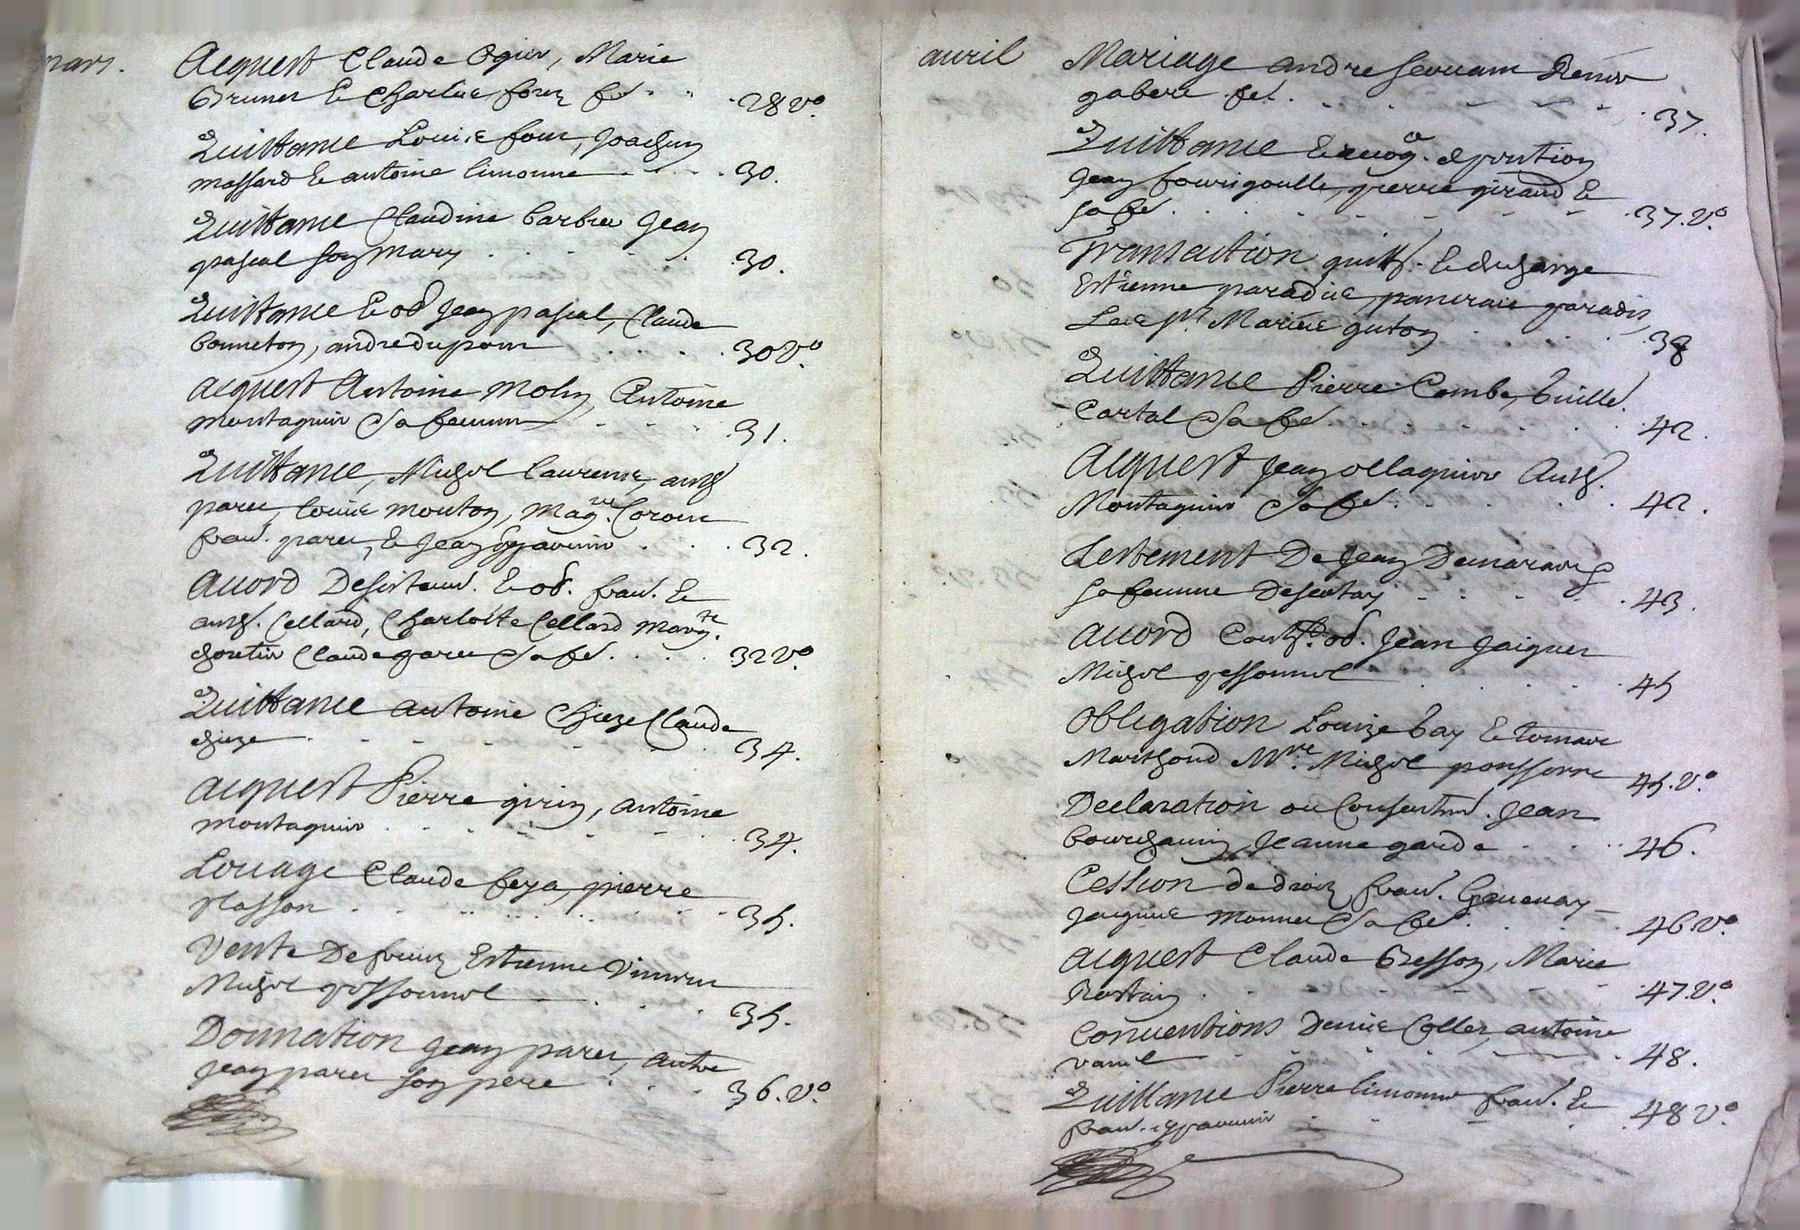 mars.
Acquest Claude Ogier, Marie
Brunel & Charles forez fe. 28 v°.
Quittance Louise four, Joachim
massard & antoine limonne 30.
Quittance Claudine barbier Jean
pascal son mary 30.
Quittance & ob Jean pascal, Claude
bonneton, andre dupom 30 v°.
Acquest Antoine Molin, Antoine
montagnier & sa femme 31.
Quittance, Michel laurens, anth
paret, louise mouton, Magne.
franc. paret, & Jean 32.
Accord & ob. franc. &
anth. Cellard, Charlotte Cellard Marg.te
Claude garet & sa fe. 32 v°.
Quittance antoine Chieze Claude
chieze 34.
Acquest Pierre girin, antoine
montagnier 34.
Louage Claude feya, pierre
plasson 35.
Vente De fruits Estienne
Michel pessonnel 35.
Donnation Jean paret, autre
Jean paret son pere 36. v°.
avril
Mariage andre
gabere fe. 37.
Quittance
Jean fourigoulle, pierre giraud &
sa fe. 37. v°.
Transaction quitt. & descharge
Estienne paradis, pancrace paradis,
Marie guton 38
Quittance Pierre Combe, Guille.
Cartal & sa fe. 42.
Acquest Jean ollagnier Anth.
Montagnier & sa fe. 42.
Testement De Jean
sa femme 43.
Accord ob. Jean Jaigner
Michel pessonnel 45
Obligation Louize bay &
Marchand Mre. Michel 45. v°.
Declaration ou Consentm. Jean
Jeanne garde 46.
Cession de droits franc.
Jacques monnet & sa fe. 46 v°.
Acquest Claude Besson, Marie
Rostain 47. v°.
Conventions Denise Collet, antoine
vanel 48.
Quittance Pierre limonne franc. &
franc. 48 v°.